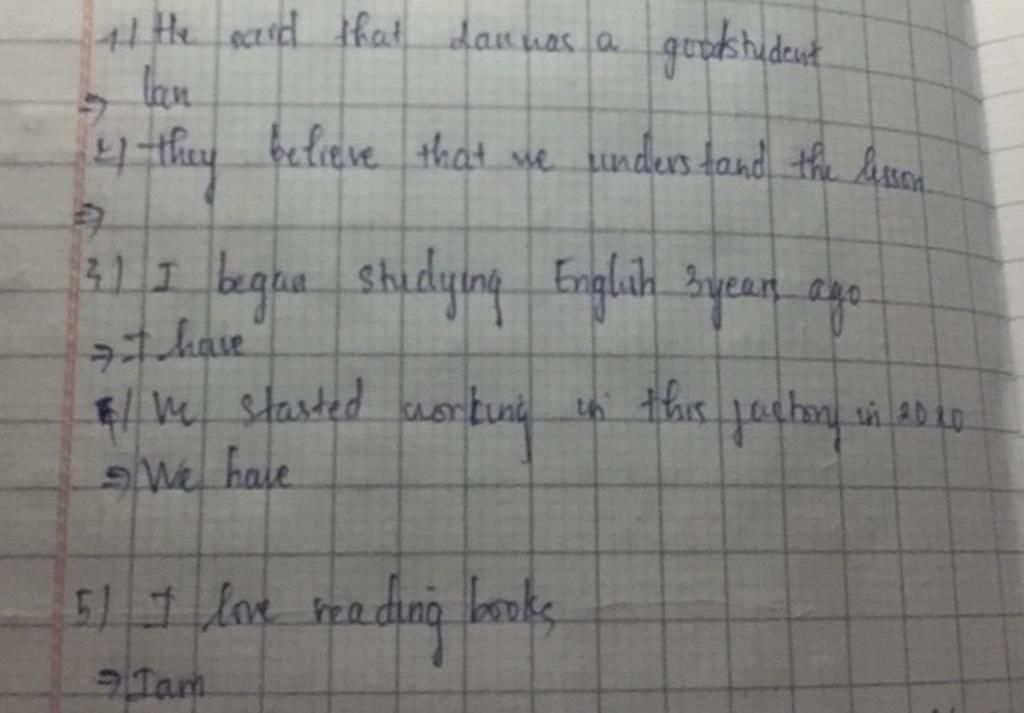 1) He said that Lan was a good student
⇒ Lan
2) they believe that we understand the lesson
⇒
3) I began studying English 3 years ago
⇒ I have
4) We started working in this factory in 2020
⇒ We have
5) I love reading books
⇒ I am